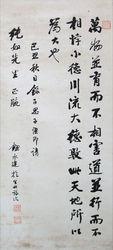 萬物並育而不相害道並行而不
相悖小德川流大德敦化此天地所以
為大也
己丑秋日錄子思子語即請
純如先生 正